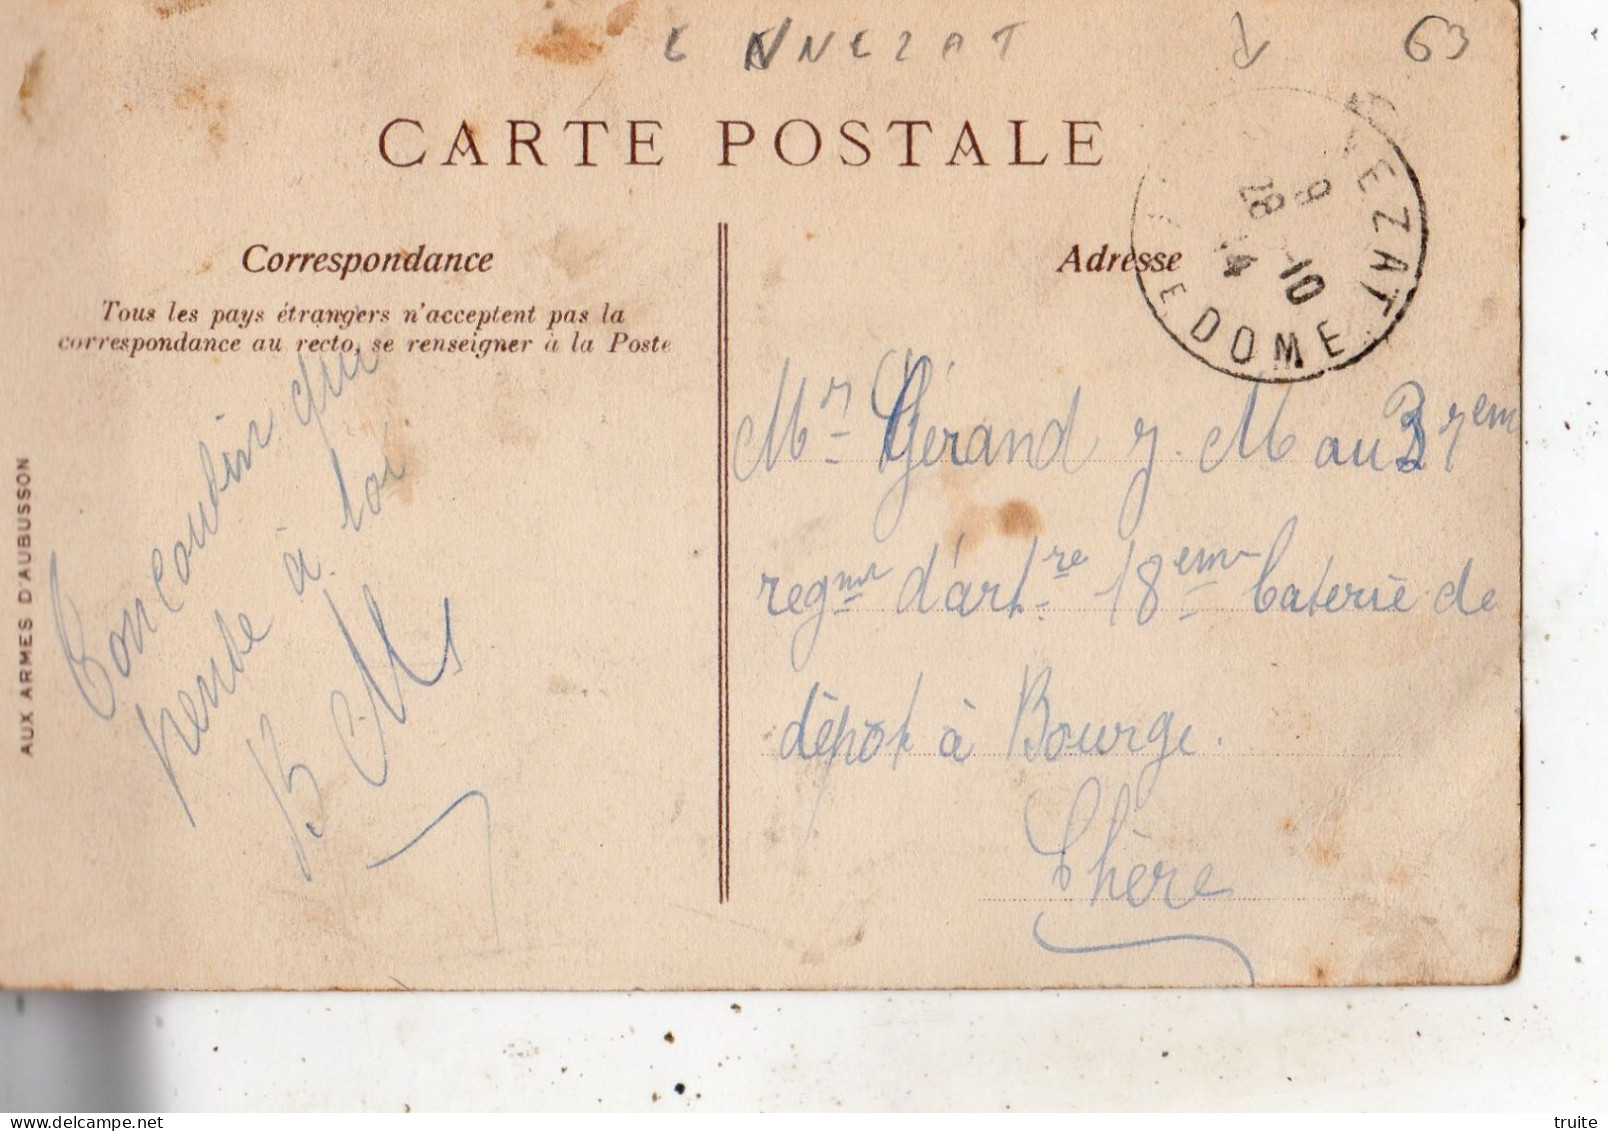 ENNEZAT 63
CARTE POSTALE
EZAT
9 10
28 14
E DOME
Correspondance
Tous les pays étrangers n'acceptent pas la
correspondance au recto, se renseigner à la Poste
AUX ARMES D'AUBUSSON
Ton coubin qui
pense à toi
B C M
Adresse
Mr Gérand J. M au 37em
regmr d'artre 18em baterie de
dépôt à Bourge.
Chère
delcampe.net
truite